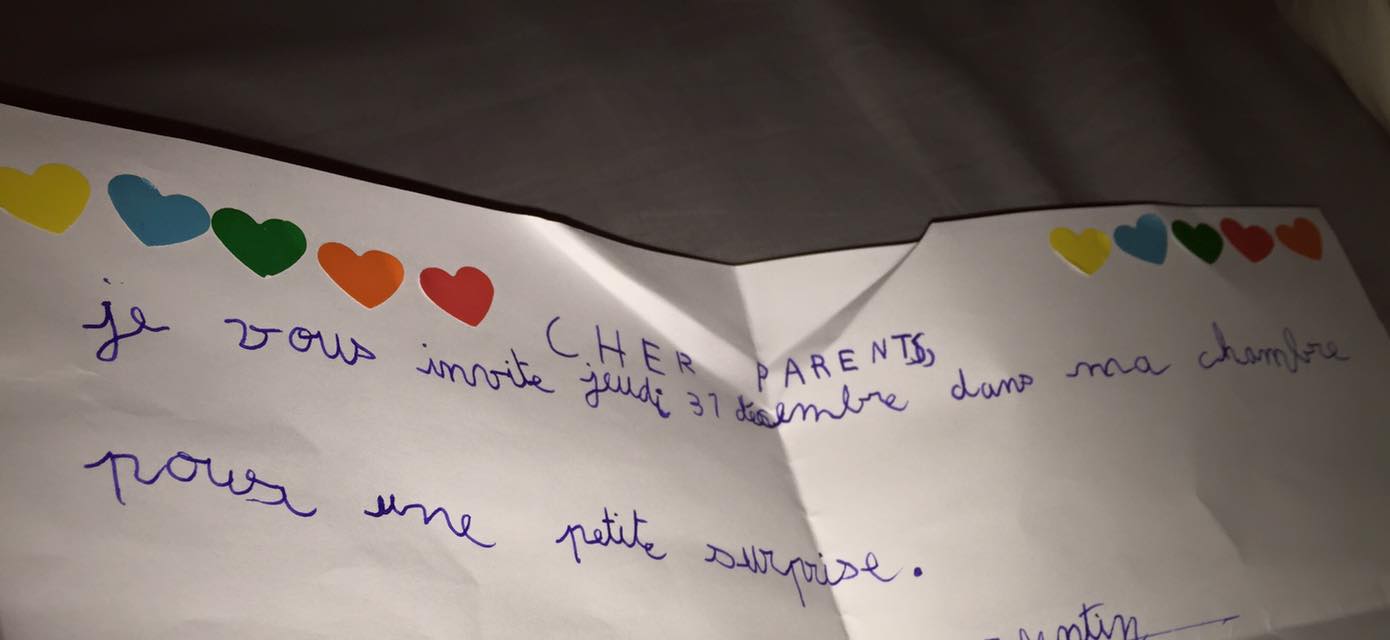 CHER PARENTS,
je vous invite jeudi 31 décembre dans ma chambre
pour une petite surprise.